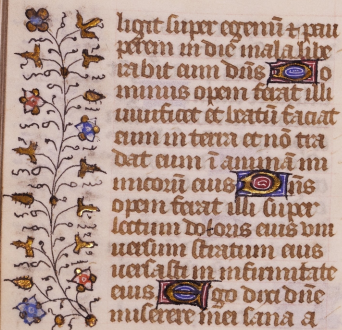 ligit super egenū ⁊ pau
perem in die mala libe
rabit eum dn̄s Do
minus opem ferat illi
uiuificet et beatū faciat
eum in terra et nō tra
dat eum ī animā ini
micorū eius Dn̄s
opem ferat illi super
lectum doloris eius uni
uersum stratum eius
uersasti in infirmitate
eius Ego dixi dn̄e
miserere mei sana a